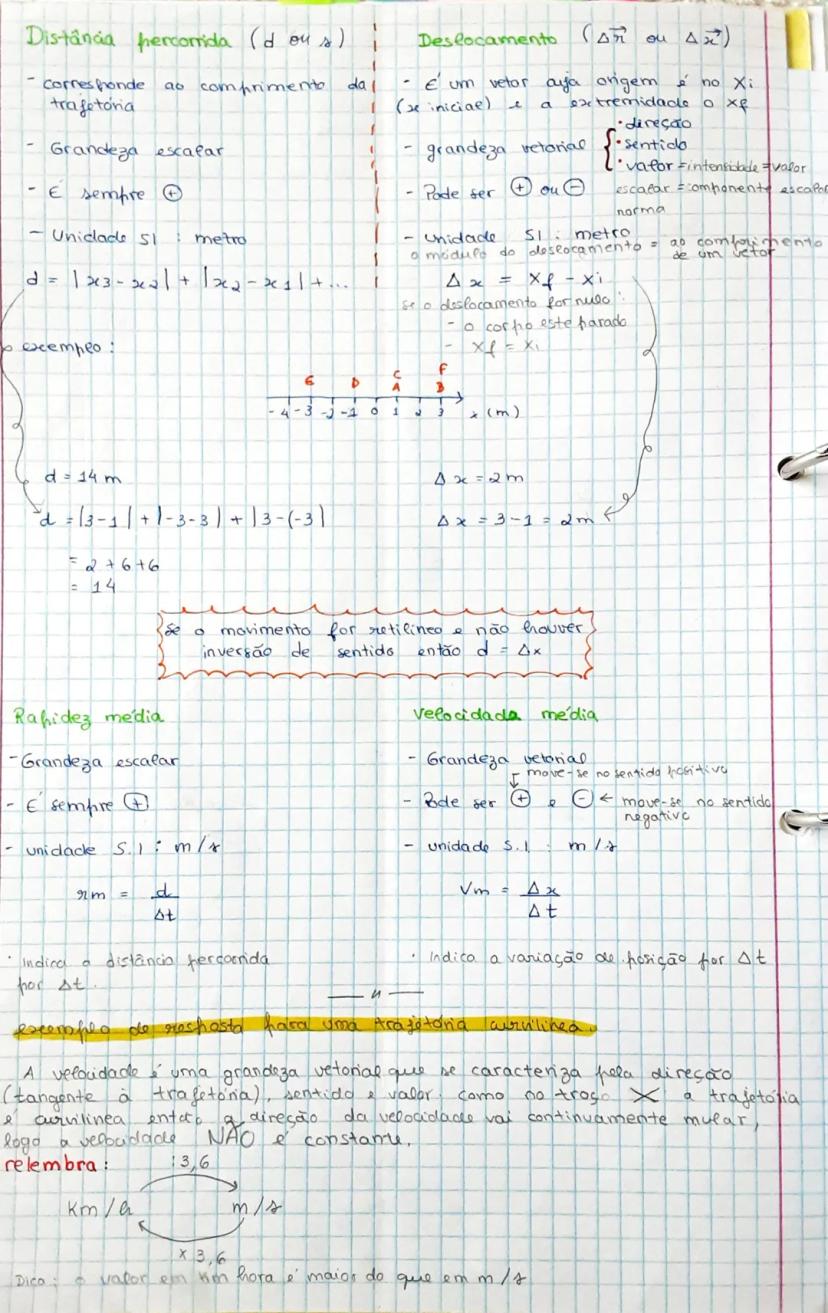 Distância percorrida (d ou s)
- corresponde ao comprimento da
trajetória
- Grandeza escalar
- É sempre ⊕
- Unidade SI : metro
d = |x3 - x2| + |x2 - x1| + ...
Deslocamento (Δr⃗ ou Δx⃗)
- É um vetor cuja origem é no Xi
(x inicial) e a extremidade o xf
- grandeza vetorial { · direção
· sentido
· valor = intensidade = valor
escalar = componente escalar
norma
- Pode ser ⊕ ou ⊖
- unidade SI : metro
o módulo do deslocamento = ao comprimento
de um vetor
Δx = Xf - Xi
se o deslocamento for nulo :
- o corpo este parado
- Xf = Xi
exemplo :
E D C F
A B
-4 -3 -2 -1 0 1 2 3 x (m)
d = 14 m
d = |3-1| + |-3-3| + |3-(-3|
= 2 + 6 + 6
= 14
Δx = 2m
Δx = 3 - 1 = 2m
Se o movimento for retilíneo e não houver
inversão de sentido então d = Δx
Rapidez média
- Grandeza escalar
- É sempre ⊕
- unidade S.I : m/s
rm = d / Δt
· Indica a distância percorrida
por Δt.
Velocidade média
- Grandeza vetorial
move-se no sentido positivo
- Pode ser ⊕ e ⊖ ← move-se no sentido
negativo
- unidade S.I : m/s
Vm = Δx / Δt
· Indica a variação de posição por Δt
exemplo de resposta para uma trajetória curvilínea.
A velocidade é uma grandeza vetorial que se caracteriza pela direção
(tangente à trajetória), sentido e valor. como no troço X a trajetória
é curvilínea então a direção da velocidade vai continuamente mular,
logo a velocidade NÃO é constante.
relembra :
:3,6
Km/h m/s
x 3,6
Dica : o valor em km hora é maior do que em m/s